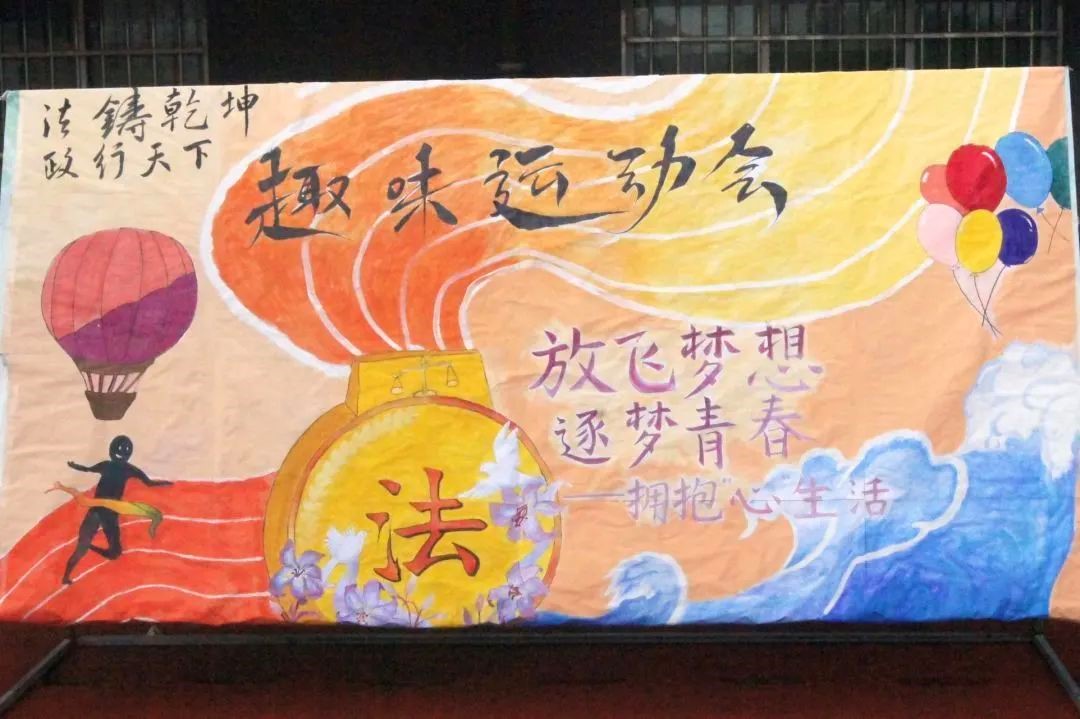 法鑄乾坤
政行天下
趣味运动会
放飞梦想
逐梦青春
——拥抱"心"生活
法